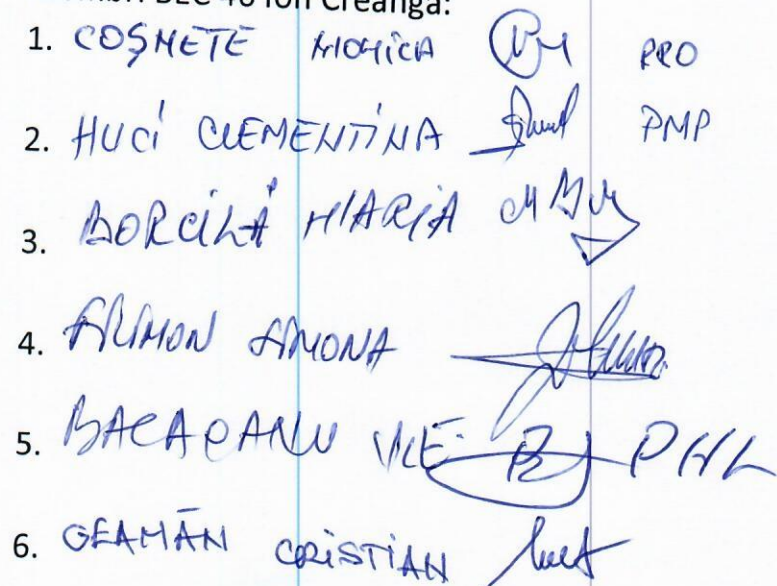 BEC 40 Ion Creangă:
1. COȘMETE MONICA PRO
2. HUCI CLEMENTINA PMP
3. BORCILĂ MARIA
4. SIMONA
5. BACAOANU PNL
6. GEAMĂN CRISTIAN